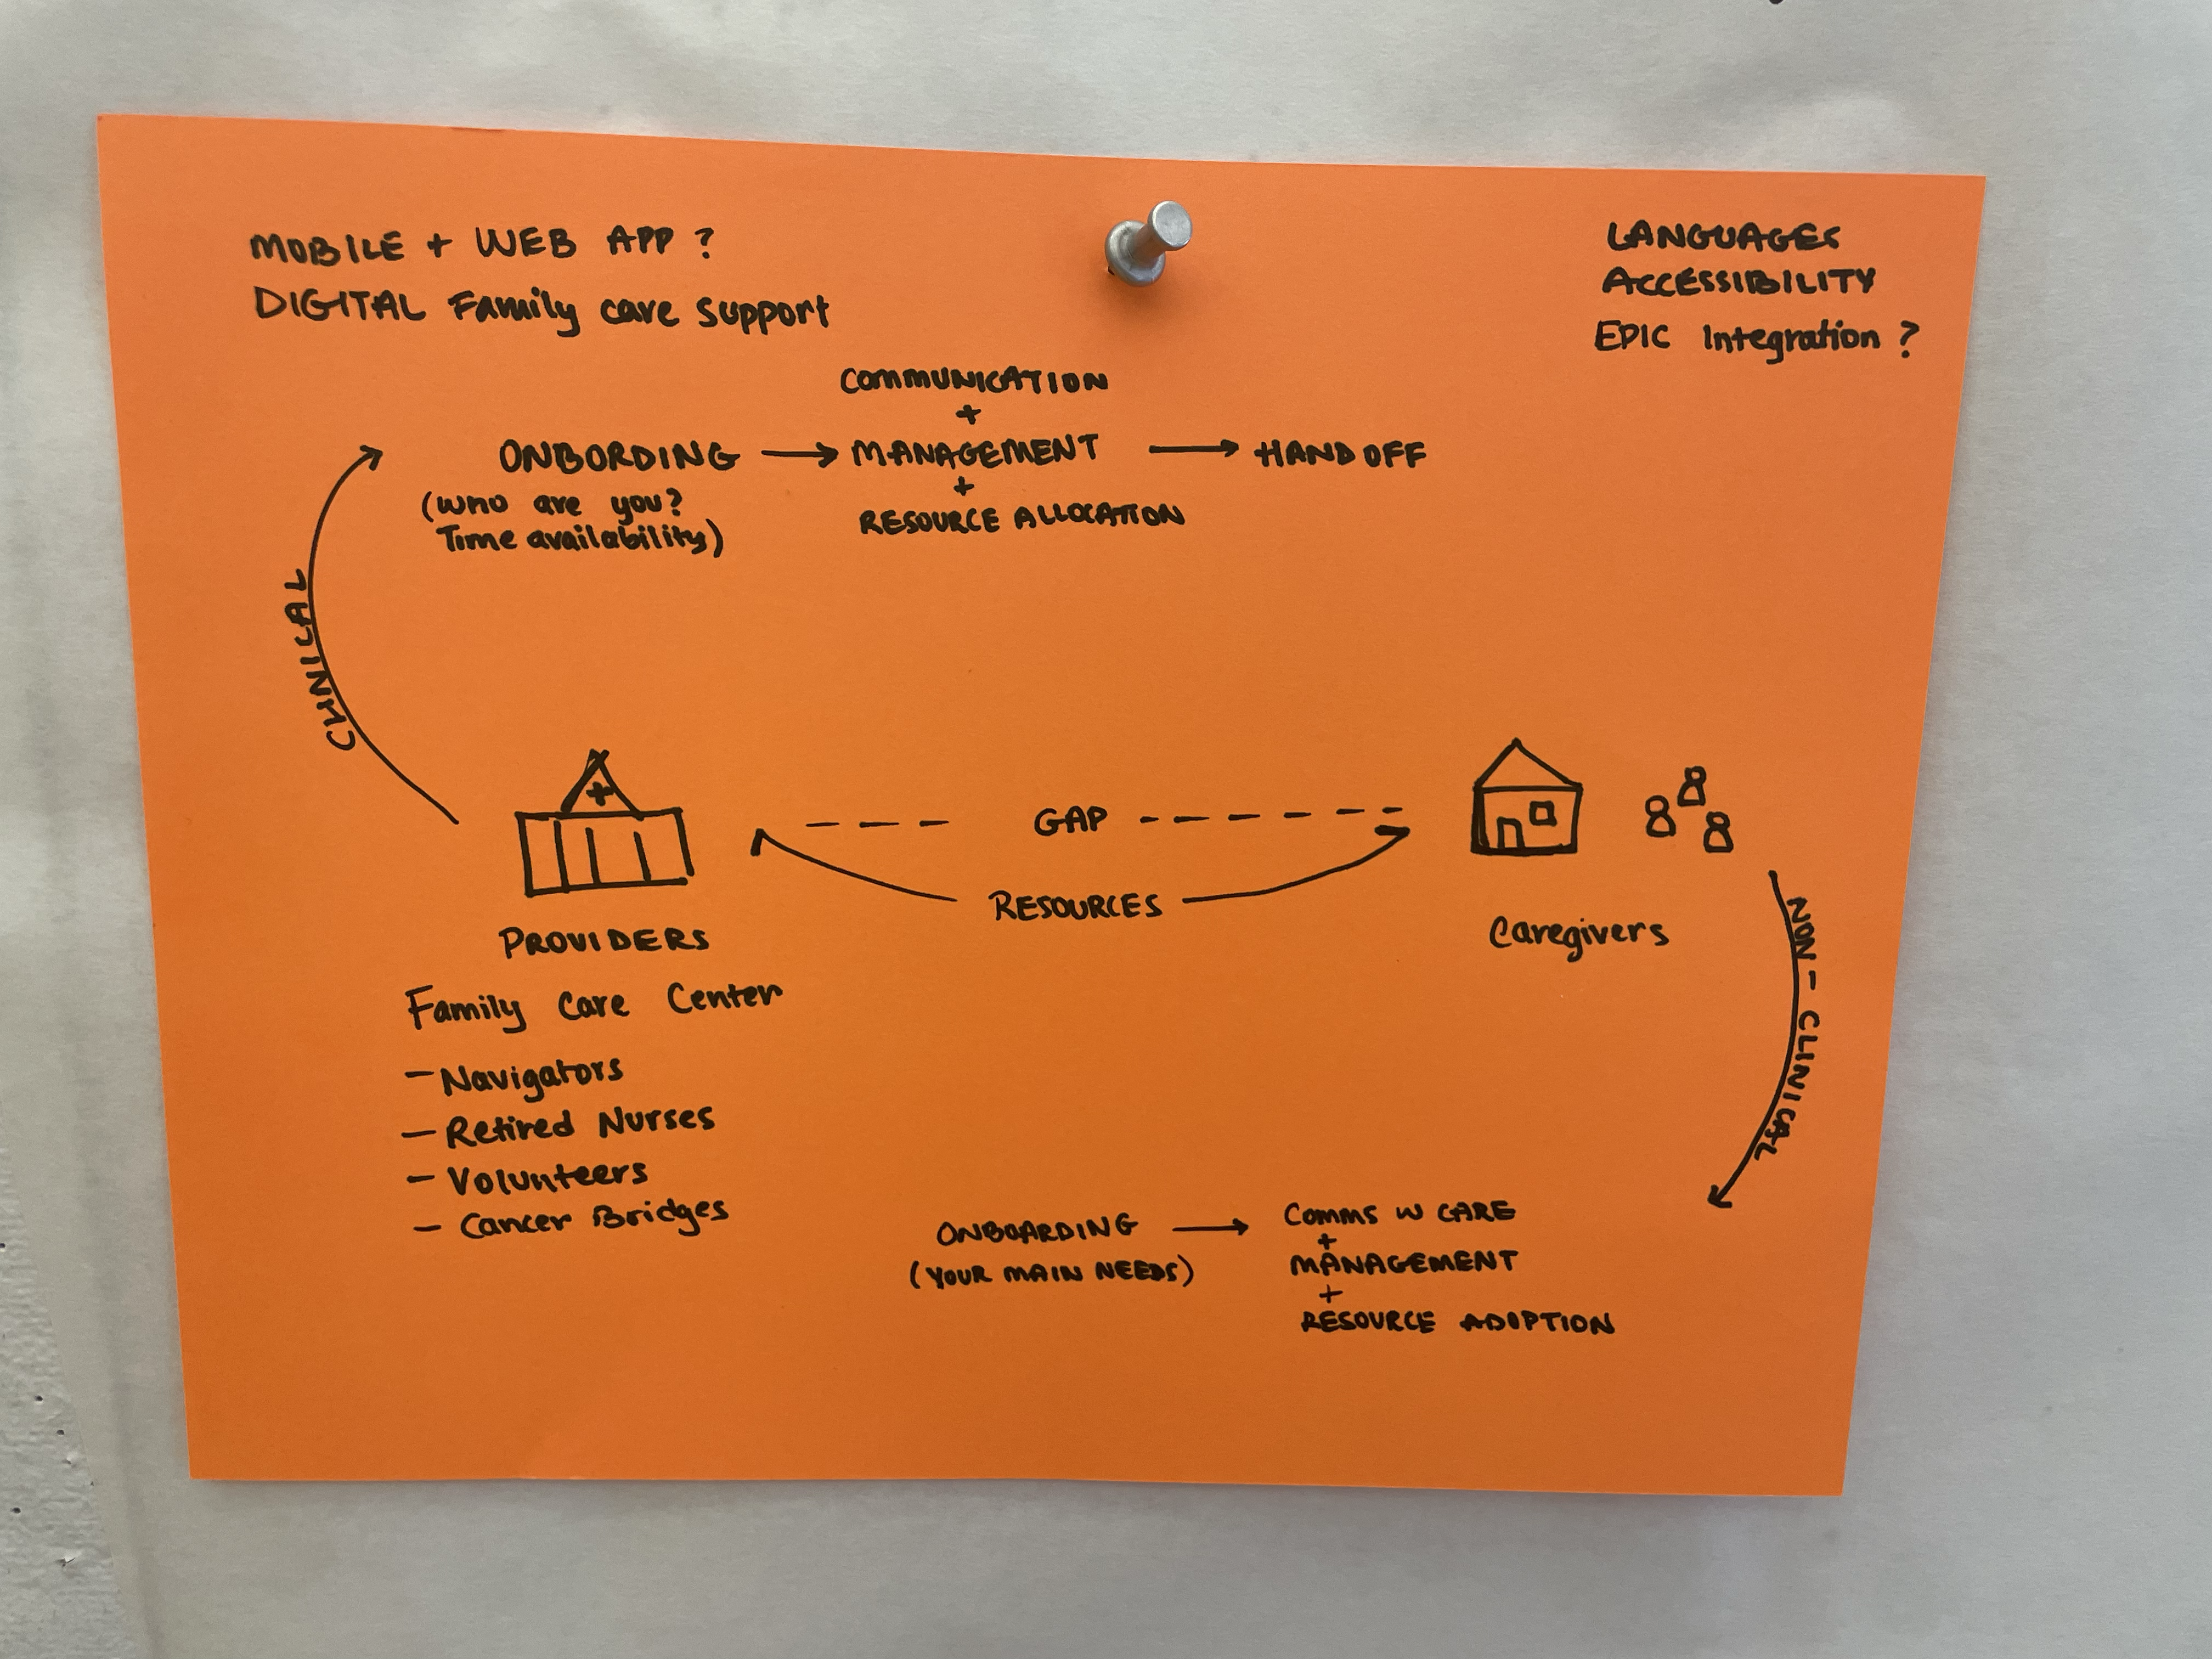 MOBILE + WEB APP ?
DIGITAL Family care support
LANGUAGES
ACCESSIBILITY
EPIC Integration ?
COMMUNICATION
+
ONBORDING → MANAGEMENT → HAND OFF
(who are you?
Time availability)
+
RESOURCE ALLOCATION
CLINICAL
+
GAP
RESOURCES
PROVIDERS
Family Care Center
– Navigators
– Retired Nurses
– Volunteers
– Cancer Bridges
Caregivers
NON - CLINICAL
ONBOARDING → COMMS W CARE
(YOUR MAIN NEEDS)
+
MANAGEMENT
+
RESOURCE ADOPTION